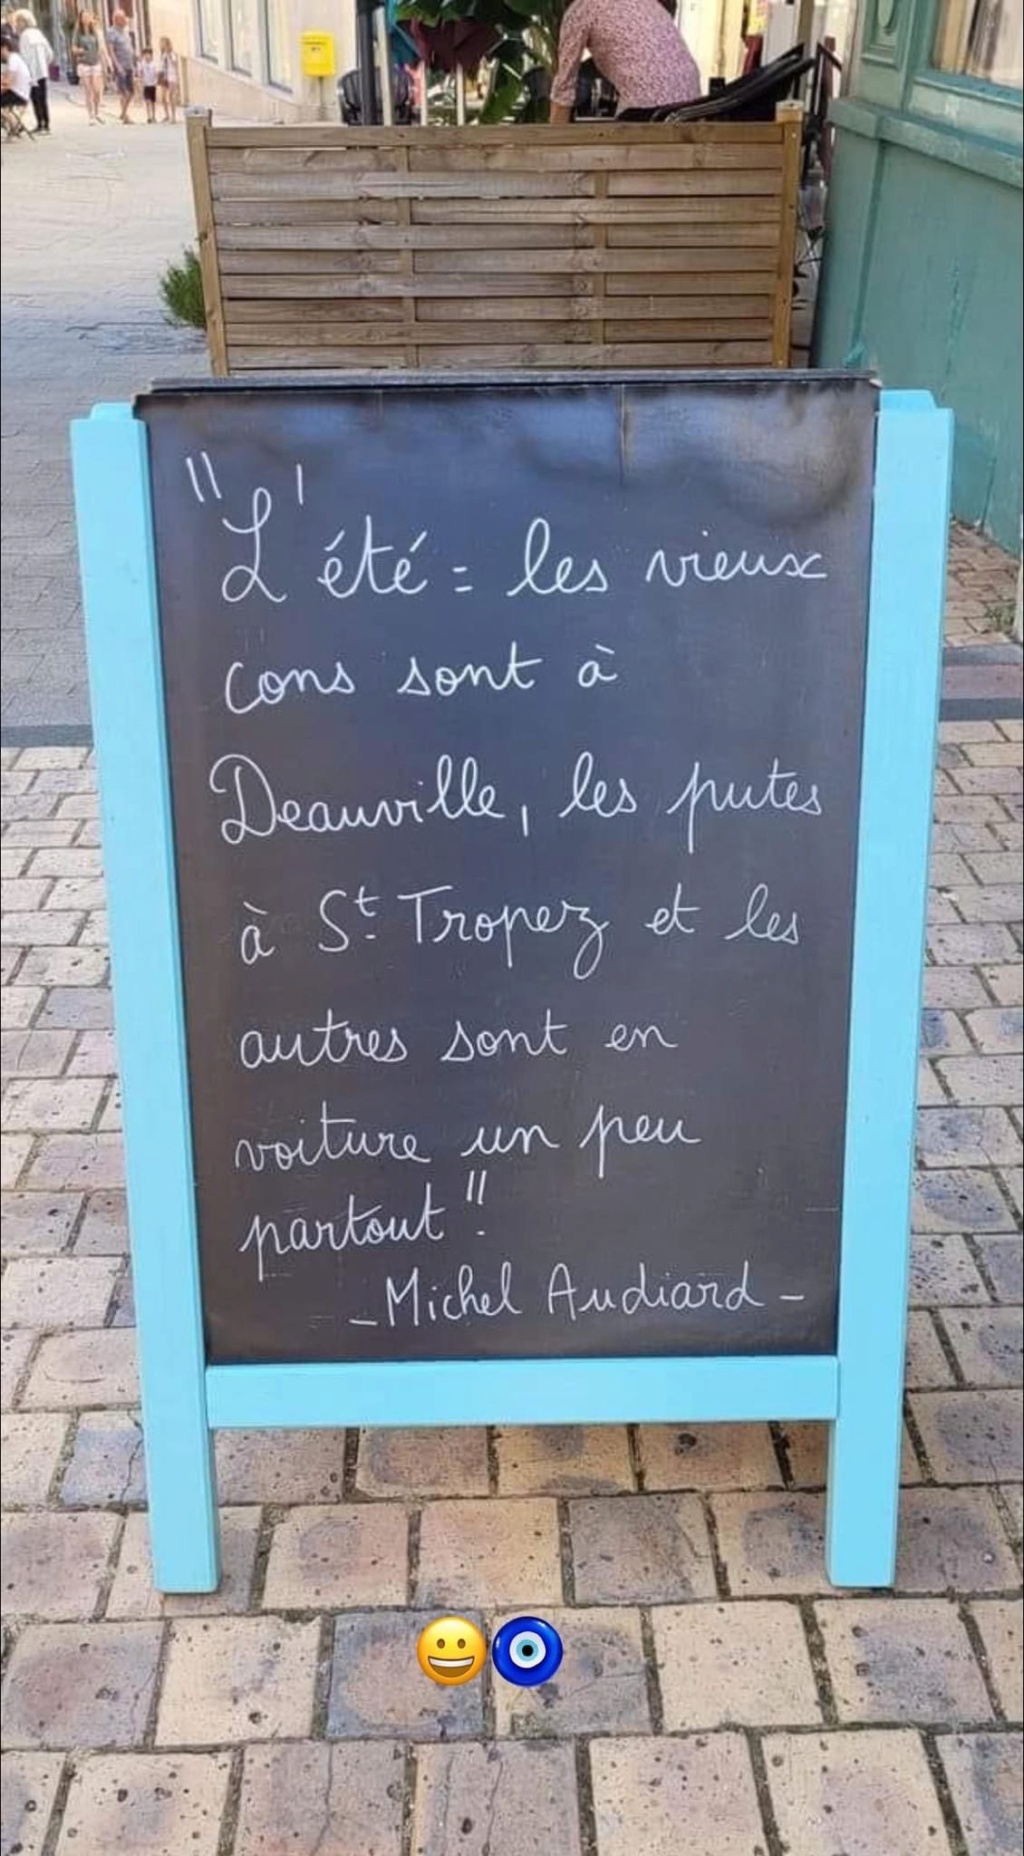 "L'été = les vieux
cons sont à
Deauville, les putes
à St. Tropez et les
autres sont en
voiture un peu
partout".
- Michel Audiard -